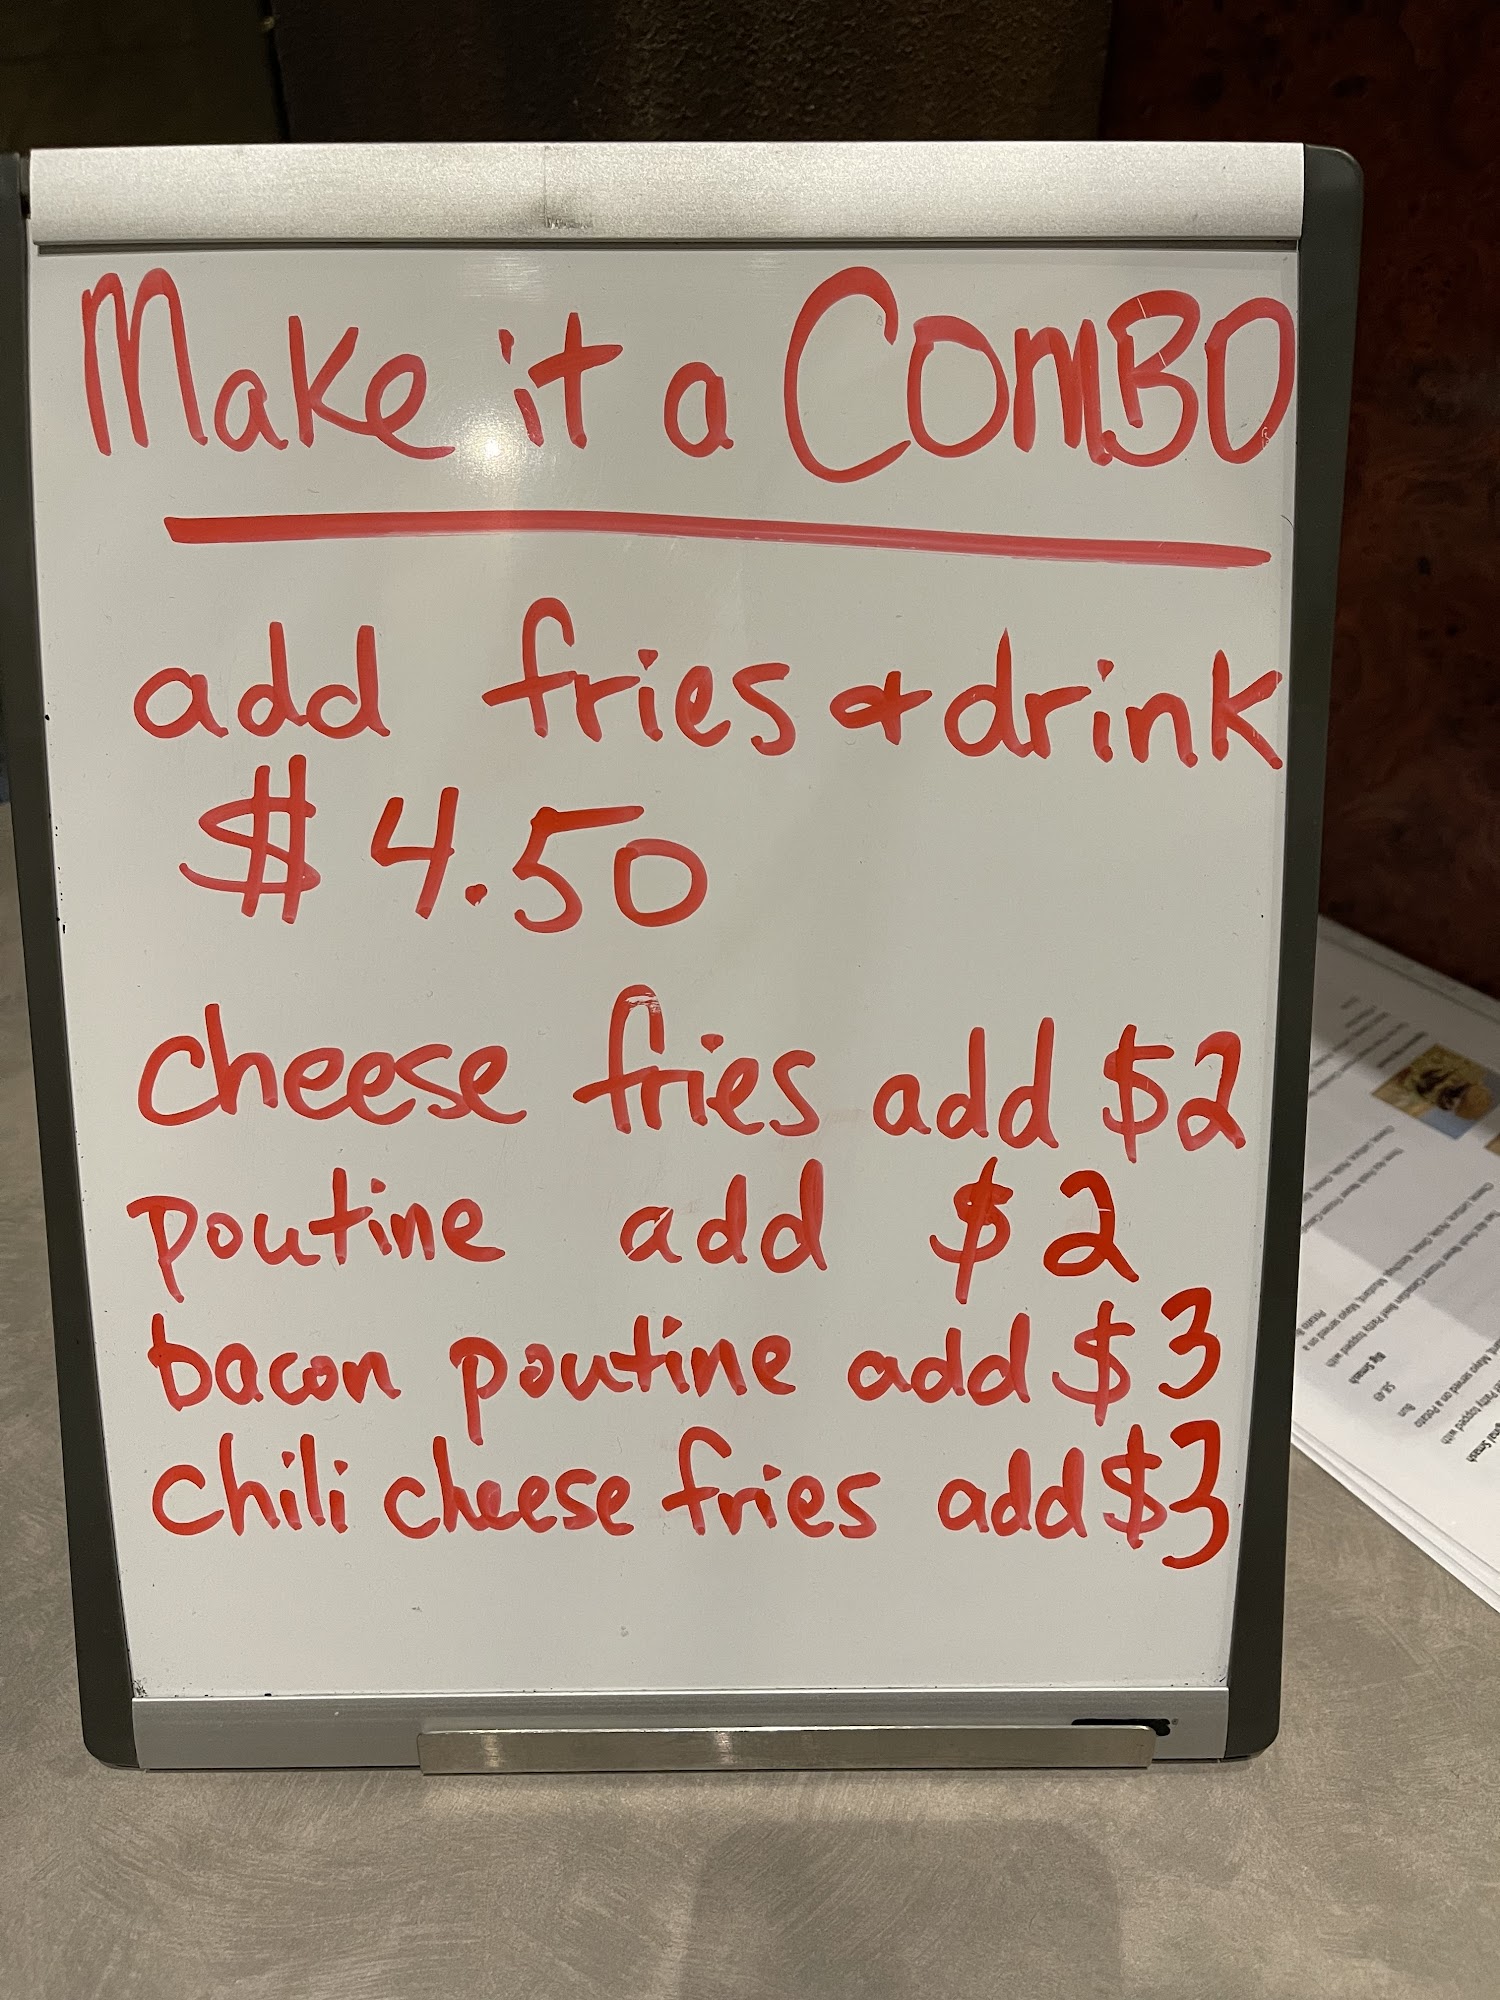 Make it a COMBO
add fries & drink
$4.50
cheese fries add $2
poutine add $2
bacon poutine add $3
chili cheese fries add $3